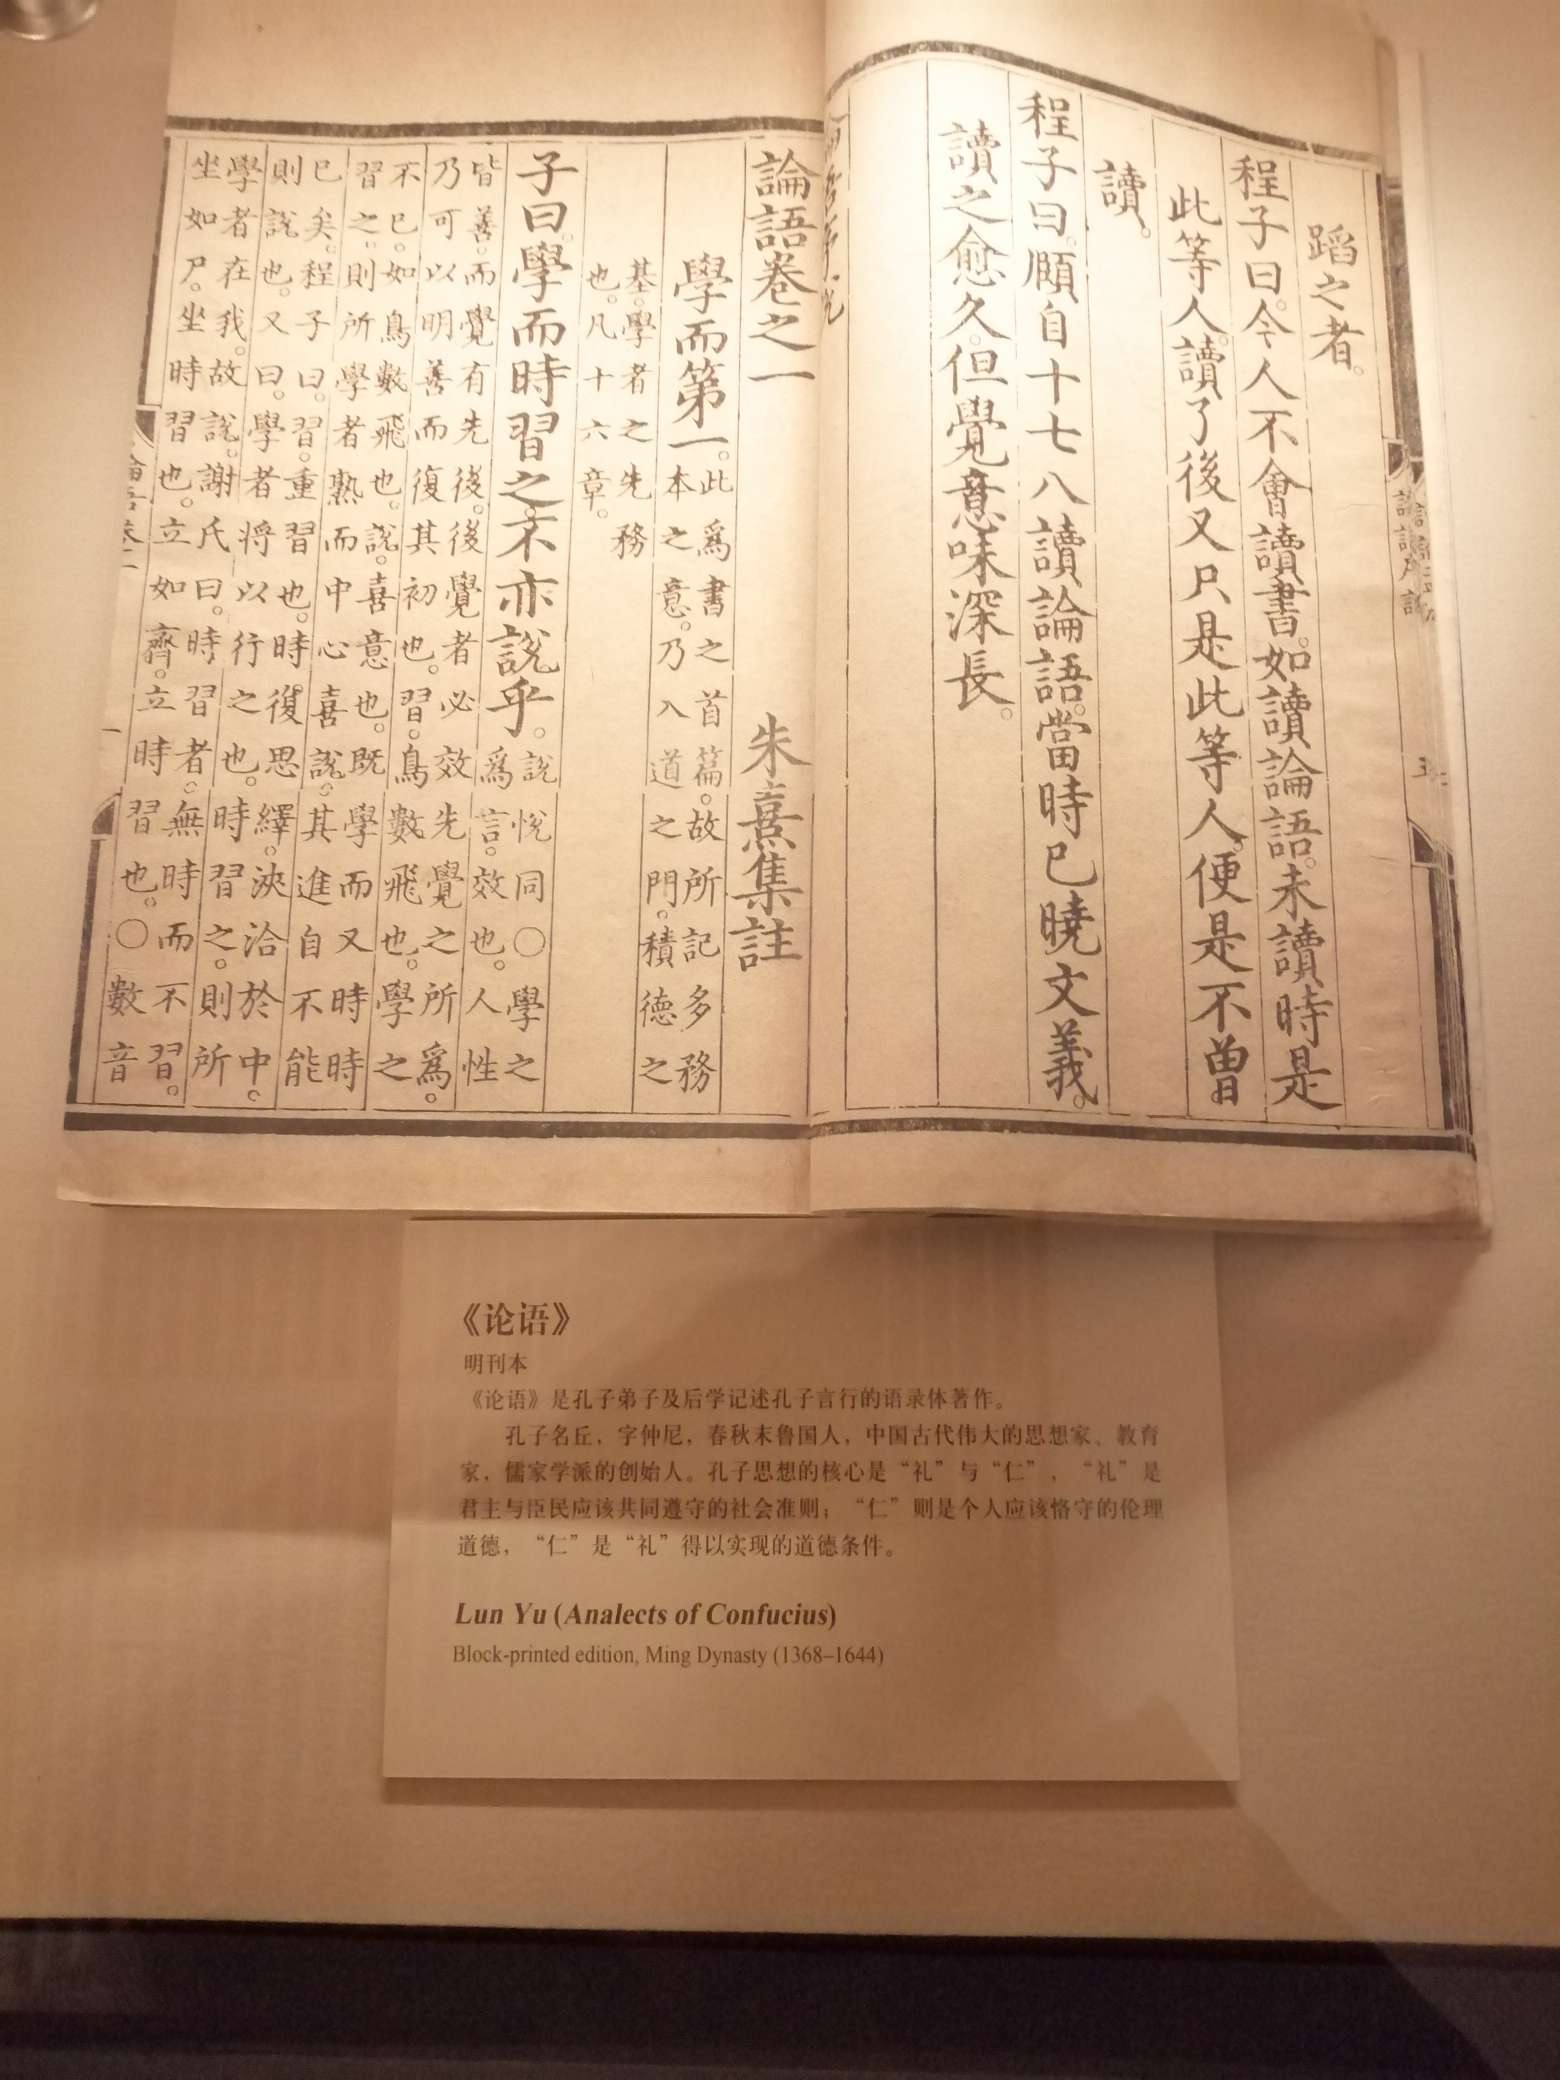 蹈之者。
程子曰。今人不會讀書。如讀論語。未讀時是
此等人。讀了後又只是此等人。便是不曾
讀。
程子曰。頤自十七八讀論語。當時已曉文義。
讀之愈久。但覺意味深長。
論語卷之一 朱熹集註
學而第一。此爲書之首篇。故所記多務
本之意。乃入道之門。積德之
基。學者之先務
也。凡十六章。
子曰。學而時習之。不亦說乎。說悅同○學之
爲言。效也。人性
皆善。而覺有先後。後覺者必效先覺之所爲。
乃可以明善而復其初也。習。鳥數飛也。學之
不已。如鳥數飛也。說。喜意也。既學而又時時
習之。則所學者熟而中心喜說。其進自不能
已矣。程子曰。習。重習也。時復思繹。浹洽於中。
則說也。又曰。學者將以行之也。時習之。則所
學者在我。故說。謝氏曰。時習者。無時而不習。
坐如尸。坐時習也。立如齊。立時習也。○數音
《论语》
明刊本
《论语》是孔子弟子及后学记述孔子言行的语录体著作。
孔子名丘，字仲尼，春秋末鲁国人，中国古代伟大的思想家、教育
家，儒家学派的创始人。孔子思想的核心是“礼”与“仁”，“礼”是
君主与臣民应该共同遵守的社会准则；“仁”则是个人应该恪守的伦理
道德，“仁”是“礼”得以实现的道德条件。
Lun Yu (Analects of Confucius)
Block-printed edition, Ming Dynasty (1368–1644)